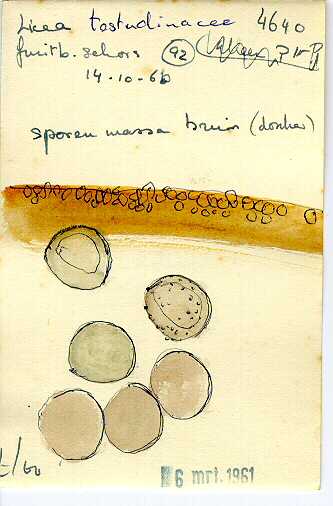 Licea testudinacee 4640
fruitb. schors 92
14-10-60
sporen massa bruin (donker)
6 mrt. 1961